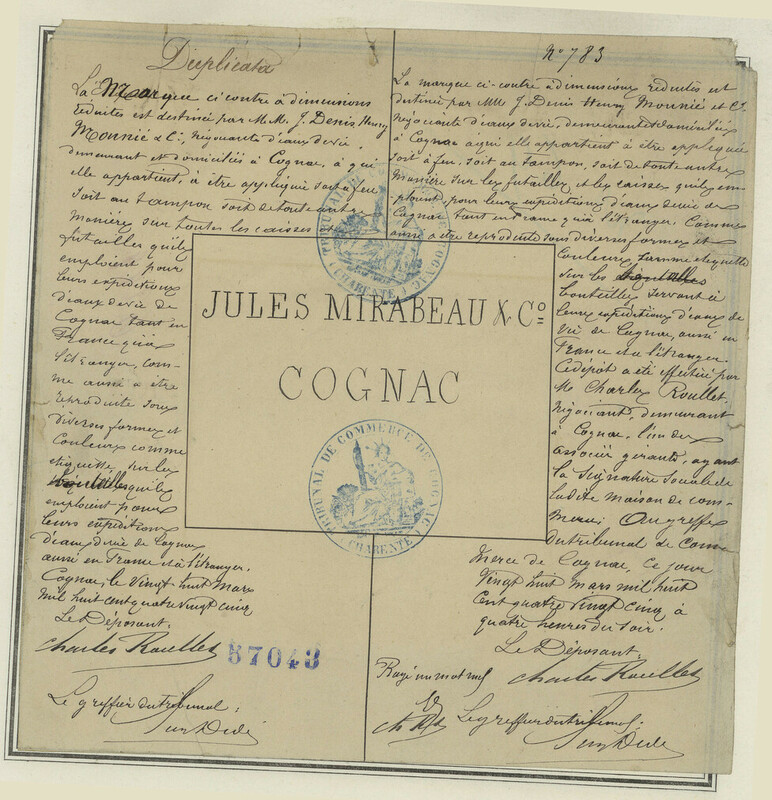 Duplicata
La Marque ci contre à dimensions
réduites est destinée par M.M. J. Denis Henry
Mounié & Cie, Négociants d'eaux de vie,
demeurant et domiciliés à Cognac, à qui
elle appartient, à être appliquée soit à feu
soit au tampon soit de toute autre
Manière sur toutes les caisses et
futailles qu'ils
emploient pour
leurs expéditions
d'eaux de vie de
Cognac tant en
France qu'à
l'étranger, com-
me aussi à être
reproduite sous
diverses formes et
Couleurs comme
étiquette, sur les
bouteilles qu'ils
emploient pour
leurs expéditions
d'eaux de vie de Cognac
aussi en France et à l'étranger.
Cognac, le Vingt huit Mars
Mil huit cent quatre vingt cinq
Le Déposant.
Charles Roullet
57043
Le greffier du tribunal:
No 783
La marque ci-contre à dimensions réduites est
destinée par MM J. Denis Henry Mounié et Cie
Négociants d'eaux de vie, demeurant et domiciliés
à Cognac à qui elle appartient à être appliquée
soit à feu, soit au tampon, soit de toute autre
Manière sur les futailles et les caisses qu'ils em-
ploient, pour leurs expéditions d'eaux de vie de
Cognac tant en France qu'à l'étranger. Comme
aussi à être reproduite sous diverses formes et
Couleurs comme étiquette
sur les bouteilles
bouteilles servant à
leurs expéditions d'eaux de
Vie de Cognac, aussi en
France et à l'étranger.
Ce dépôt a été effectué par
Mr Charles Roullet,
Négociant, demeurant
à Cognac, l'un des
associés gérants, ayant
la Signature Sociale de
la dite Maison de com-
merce Au greffe
du tribunal de Com-
Merce de Cognac, ce jour
Vingt huit Mars mil huit
Cent quatre vingt cinq à
quatre heures du soir.
Le Déposant.
Charles Roullet
Rayé un mot nul
Ch R
Le greffier du tribunal:
JULES MIRABEAU & Co
COGNAC
TRIBUNAL DE COMMERCE DE COGNAC
(CHARENTE)
TRIBUNAL DE COMMERCE DE COGNAC
(CHARENTE)